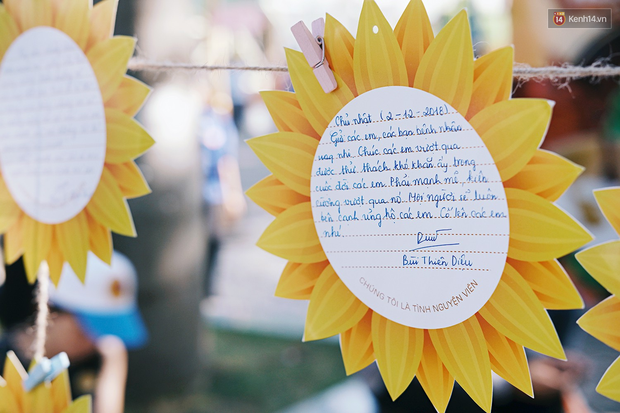 Kenh14.vn
Chủ nhật (2-12-2018)
Gửi các em, các bạn bệnh nhân
ung nhi. Chúc các em vượt qua
được thử thách khó khăn ấy trong
cuộc đời các em. Phải mạnh mẽ, kiên
cường vượt qua nó. Mọi người sẽ luôn
bên cạnh ủng hộ các em. Cố lên các em
nhé
Bùi Thiên Diệu
CHÚNG TÔI LÀ TÌNH NGUYỆN VIÊN